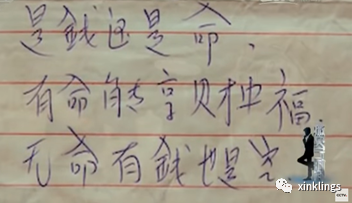 是錢还是命，
有命能享财神福
无命有錢也是空
xinklings
CCTV